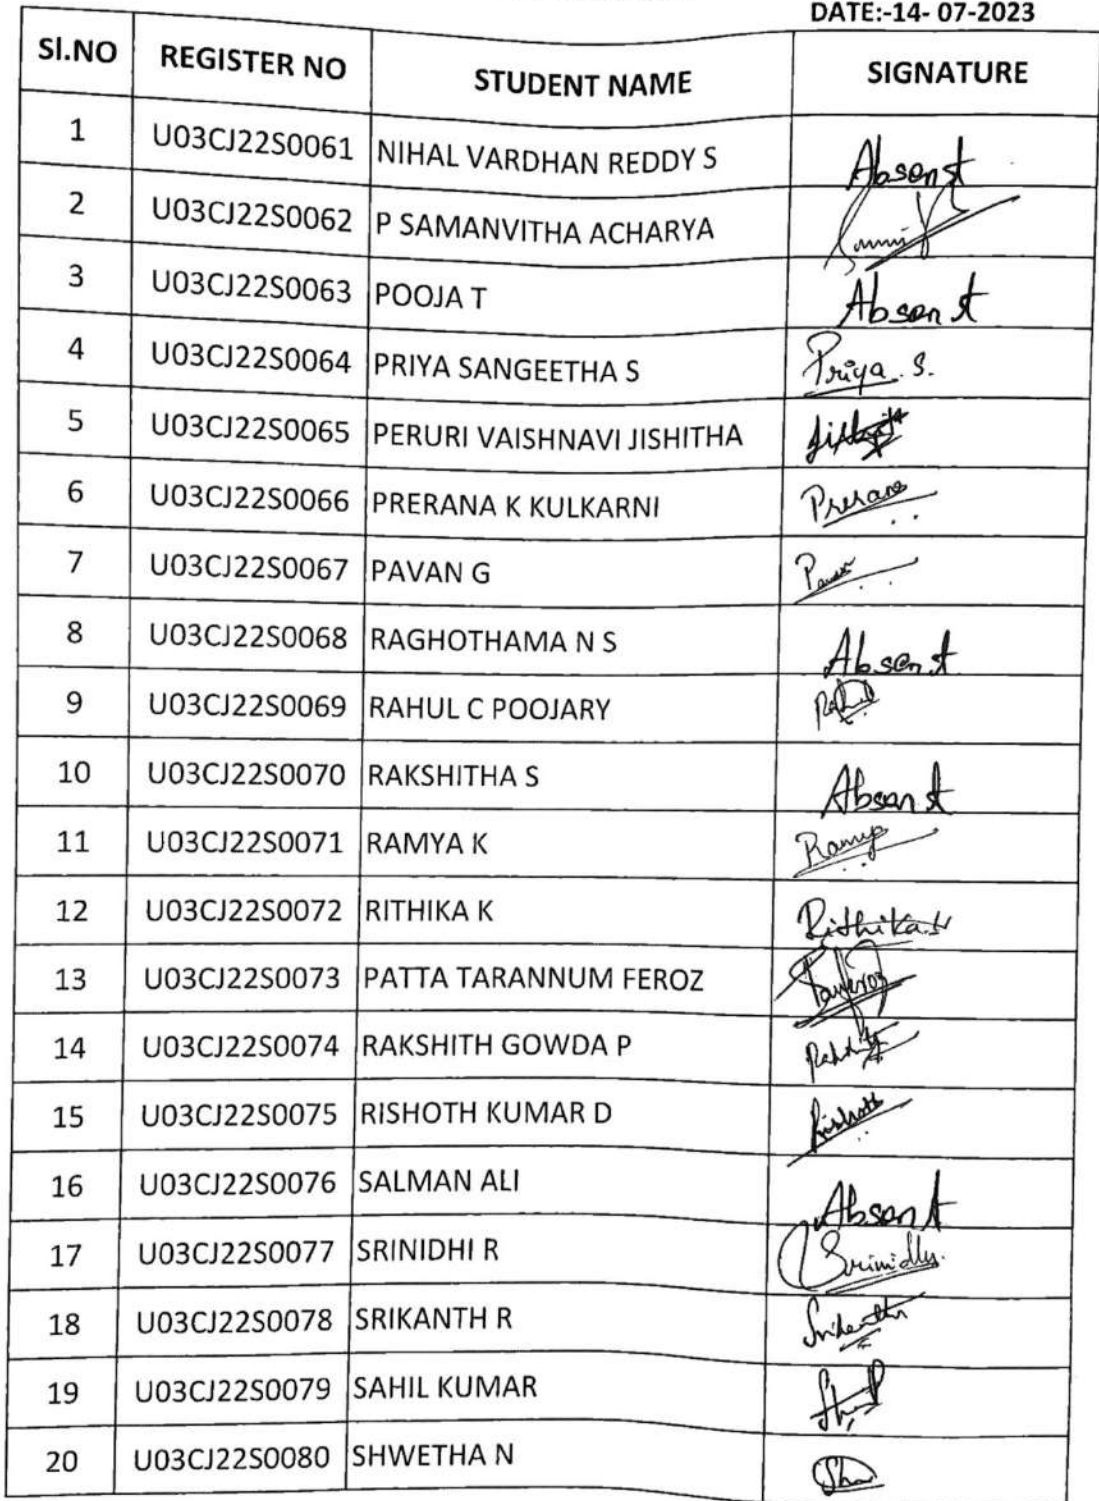 DATE:-14- 07-2023
SI.NO REGISTER NO STUDENT NAME SIGNATURE
1 U03CJ22S0061 NIHAL VARDHAN REDDY S Absent
2 U03CJ22S0062 P SAMANVITHA ACHARYA
3 U03CJ22S0063 POOJA T Absent
4 U03CJ22S0064 PRIYA SANGEETHA S Priya. S.
5 U03CJ22S0065 PERURI VAISHNAVI JISHITHA
6 U03CJ22S0066 PRERANA K KULKARNI Prerana
7 U03CJ22S0067 PAVAN G Pavan
8 U03CJ22S0068 RAGHOTHAMA N S Absent
9 U03CJ22S0069 RAHUL C POOJARY Rahul
10 U03CJ22S0070 RAKSHITHA S Absent
11 U03CJ22S0071 RAMYA K Ramya
12 U03CJ22S0072 RITHIKA K Rithika.K
13 U03CJ22S0073 PATTA TARANNUM FEROZ
14 U03CJ22S0074 RAKSHITH GOWDA P
15 U03CJ22S0075 RISHOTH KUMAR D Rishoth
16 U03CJ22S0076 SALMAN ALI Absent
17 U03CJ22S0077 SRINIDHI R Srinidhi
18 U03CJ22S0078 SRIKANTH R Srikanth
19 U03CJ22S0079 SAHIL KUMAR
20 U03CJ22S0080 SHWETHA N